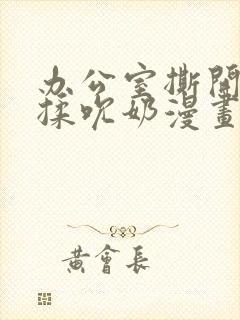 办公室撕開
揉吹奶漫畫
黃會長